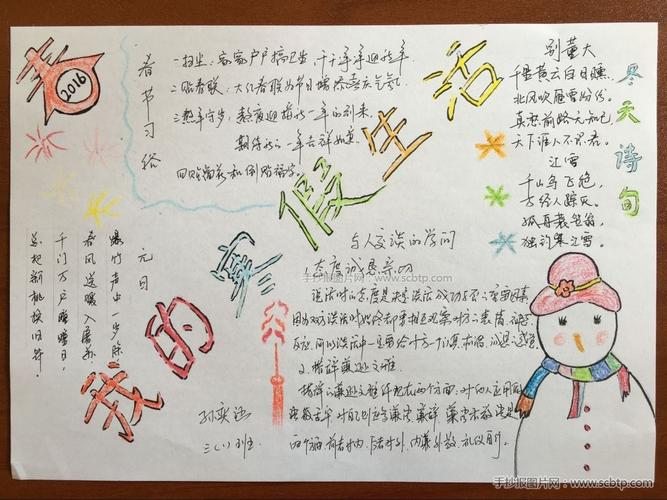 春
2016
我的寒假生活
春节习俗
一.扫尘、家家户户搞卫生,干干净净迎新年
二.贴春联:大红春联为节日增添喜庆气氛.
三.熬年守岁:整夜迎接新一年的到来,
期待新的一年吉祥如意
四.贴窗花和倒贴福字
元日
爆竹声中一岁除
春风送暖入屠苏
千门万户曈曈日,
总把新桃换旧符.
寒天诗句
别董大
千里黄云白日曛,
北风吹雁雪纷纷.
莫愁前路无知己,
天下谁人不识君.
江雪
千山鸟飞绝,
万径人踪灭.
孤舟蓑笠翁,
独钓寒江雪.
与人交谈的学问
1.态度诚恳亲切
说话时的态度是决定谈话成功与否的重要因素,
因为双方谈话时始终都要相互观察对方的表情、神态,
反应,所以谈话中一定要给对方一个认真、和谐、
2.措辞谦逊文雅
措辞的谦逊文雅体现在两个方面:对他人应用敬
三(1)班
手抄报图片网:www.scbtp.com
手抄报图片网-www.scbtp.com